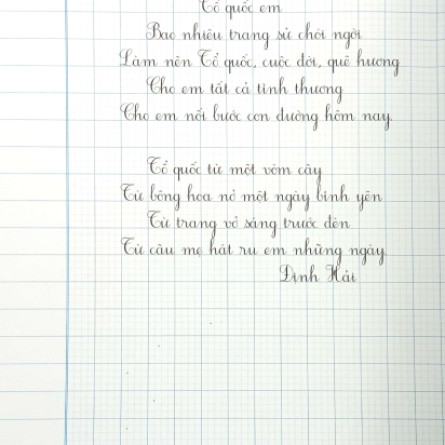 Tổ quốc em
Bao nhiêu trang sử chói ngời
Làm nên Tổ quốc, cuộc đời, quê hương
Cho em tất cả tình thương
Cho em nối bước con đường hôm nay.
Tổ quốc từ một vòm cây
Từ bông hoa nở một ngày bình yên
Từ trang vở sáng trước đèn
Từ câu mẹ hát ru em những ngày
Định Hải